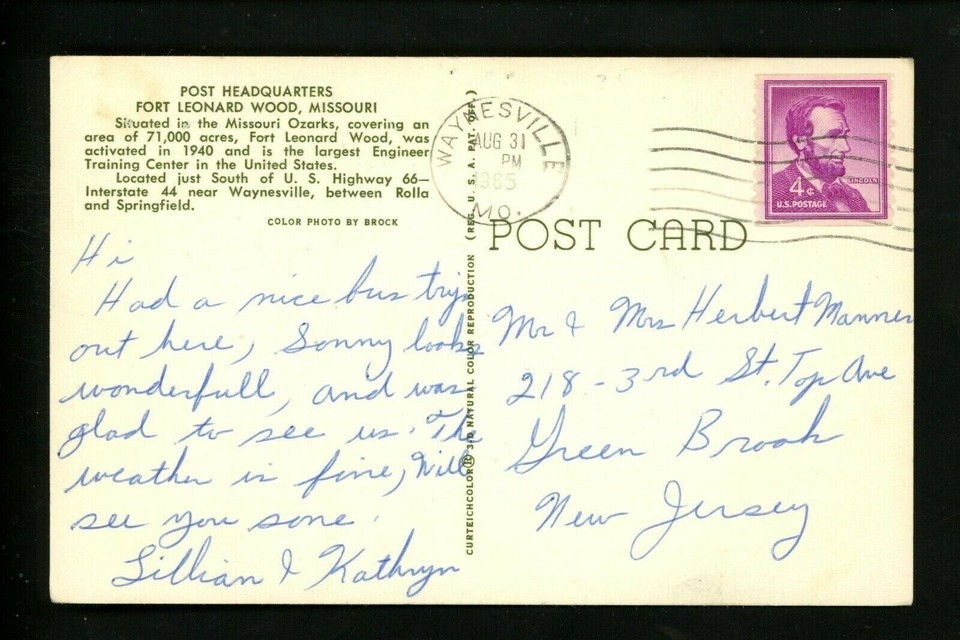 POST HEADQUARTERS
FORT LEONARD WOOD, MISSOURI
Situated in the Missouri Ozarks, covering an
area of 71,000 acres, Fort Leonard Wood, was
activated in 1940 and is the largest Engineer
Training Center in the United States.
Located just South of U. S. Highway 66—
Interstate 44 near Waynesville, between Rolla
and Springfield.
COLOR PHOTO BY BROCK
Hi
Had a nice bus trip
out here, Sonny looks
wonderfull, and was
glad to see us. The
weather is fine, Will
see you sone.
Lillian & Kathryn
CURTEICHCOLOR® 3-D NATURAL COLOR REPRODUCTION (REG. U. S. A. PAT. OFF.)
WAYNESVILLE
AUG 31
PM
1965
MO.
LINCOLN
4¢
U.S. POSTAGE
POST CARD
Mr & Mrs Herbert Manner
218-3rd St. Top Ave
Green Brook
New Jersey